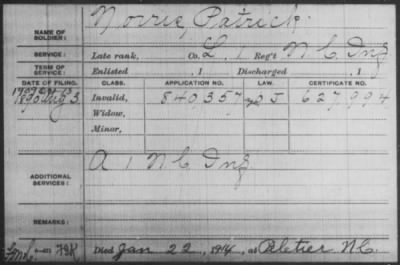 NAME OF SOLDIER: Norris, Patrick.
SERVICE: Late rank, Co. L, 1 Reg't N C Inf
TERM OF SERVICE: Enlisted , 1 Discharged , 1
DATE OF FILING. CLASS. APPLICATION NO. LAW. CERTIFICATE NO.
1890 Aug 3. Invalid, 840357 J 627994
Widow,
Minor,
ADDITIONAL SERVICES: A 1 N C Inf
REMARKS:
Died Jan 22, 1914, at Peletier N.C.